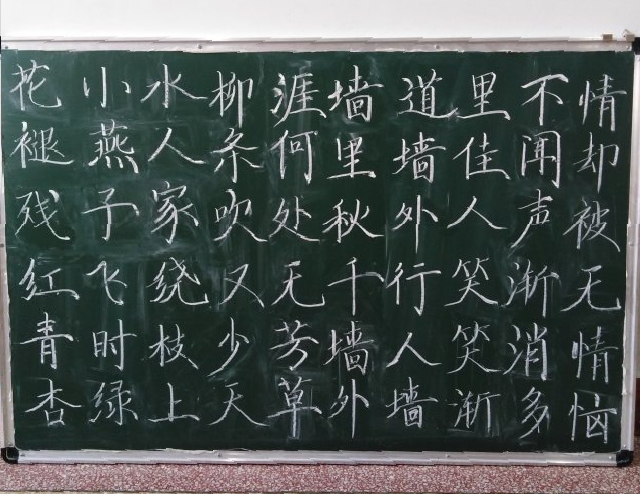 花褪残红青杏
小燕子飞时绿
水人家绕枝上
柳条吹又少天
涯何处无芳草
墙里秋千墙外
道墙外行人墙
里佳人笑笑渐
不闻声渐消多
情却被无情恼